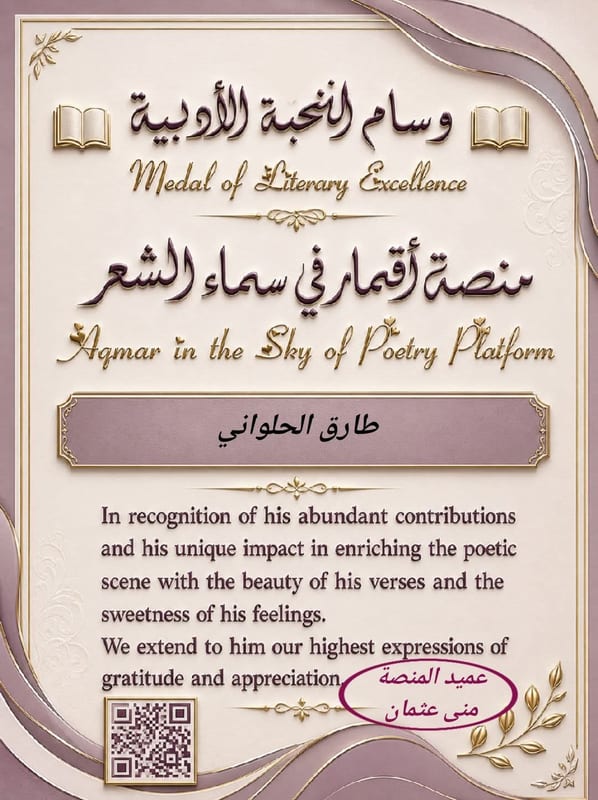 وسام النخبة الأدبية
Medal of Literary Excellence
منصة أقمار في سماء الشعر
Aqmar in the Sky of Poetry Platform
طارق الحلواني
In recognition of his abundant contributions
and his unique impact in enriching the poetic
scene with the beauty of his verses and the
sweetness of his feelings.
We extend to him our highest expressions of
gratitude and appreciation
عميد المنصة
منى عثمان